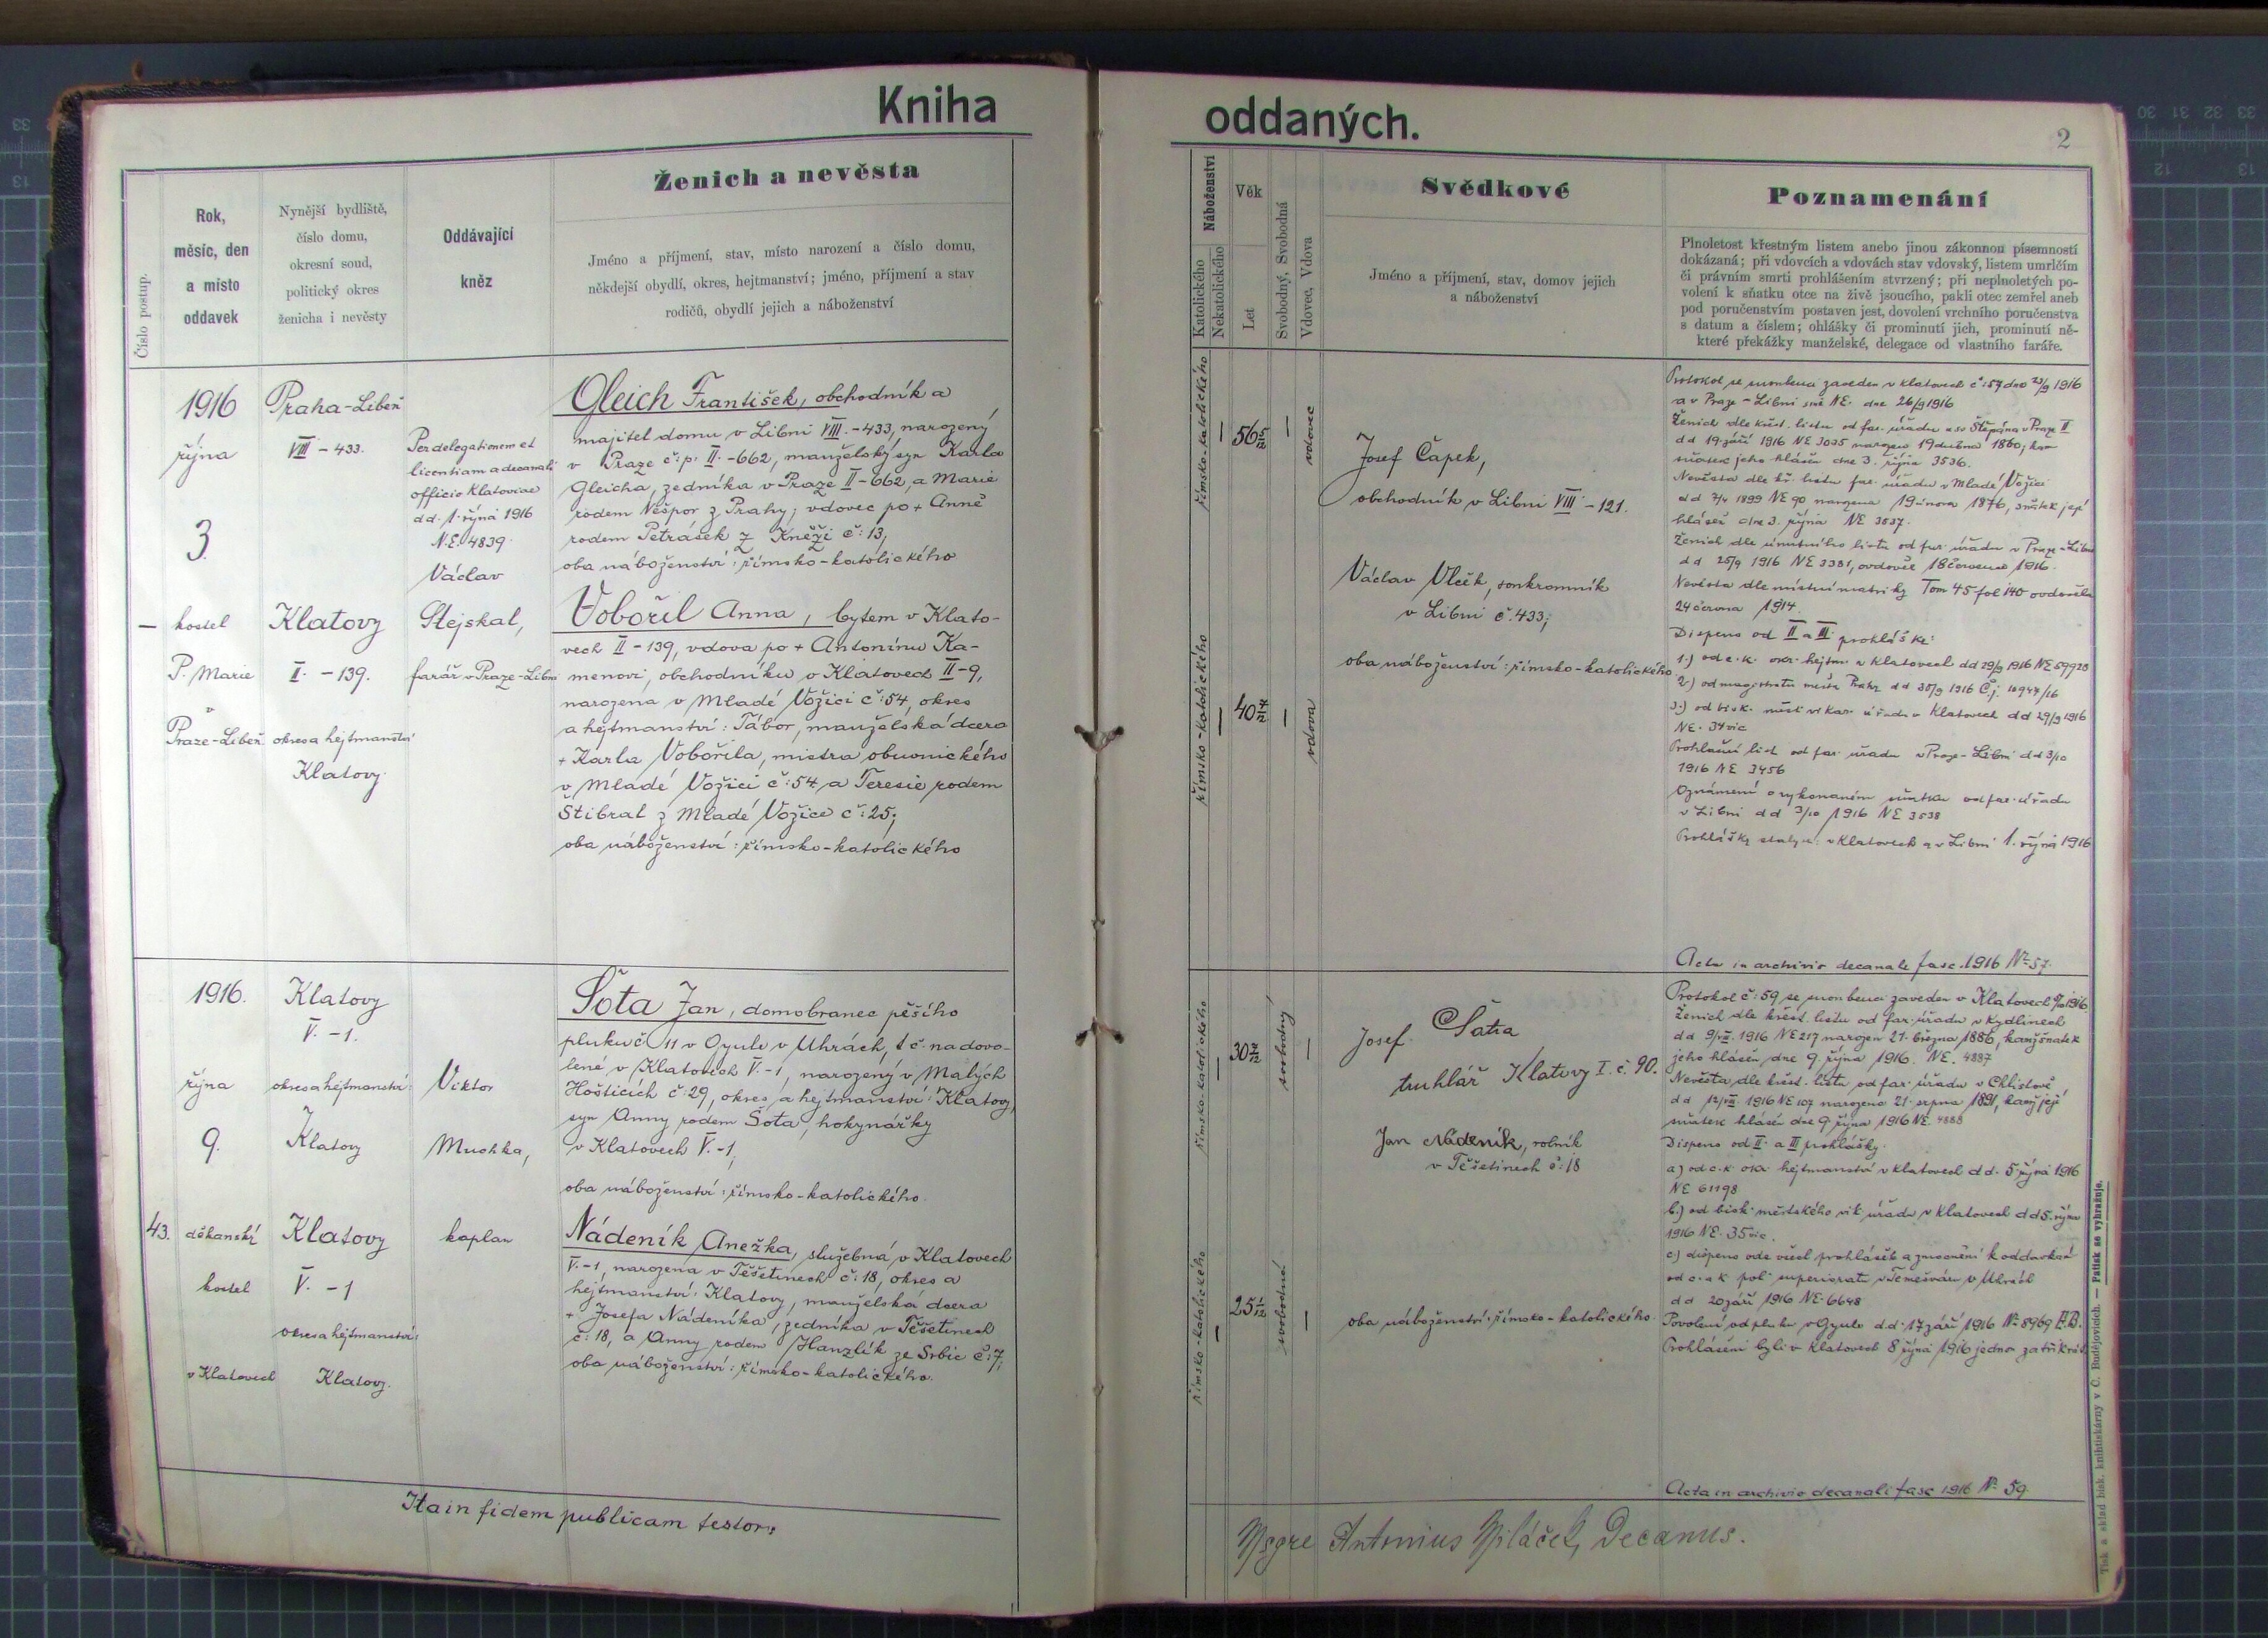 Kniha
oddaných.
2
Číslo postup.
Rok,
měsíc, den
a místo
oddavek
Nynější bydliště,
číslo domu,
okresní soud,
politický okres
ženicha i nevěsty
Oddávající
kněz
Ženich a nevěsta
Jméno a příjmení, stav, místo narození a číslo domu,
někdejší obydlí, okres, hejtmanství; jméno, příjmení a stav
rodičů, obydlí jejich a náboženství
Náboženství
Katolického
Nekatolického
Věk
Let
Svobodný, Svobodná
Vdovec, Vdova
Svědkové
Jméno a příjmení, stav, domov jejich
a náboženství
Poznamenání
Plnoletost křestným listem anebo jinou zákonnou písemností
dokázaná; při vdovcích a vdovách stav vdovský, listem umrlčím
či právním smrti prohlášením stvrzený; při neplnoletých po-
volení k sňatku otce na živě jsoucího, pakli otec zemřel aneb
pod poručenstvím postaven jest, dovolení vrchního poručenstva
s datum a číslem; ohlášky či prominutí jich, prominutí ně-
které překážky manželské, delegace od vlastního faráře.
1916
října
3.
—
kostel
P. Marie
v
Praze-Libeň
Praha-Libeň
VIII – 433.
Klatovy
II. – 139.
okres a hejtmanství
Klatovy.
Per delegationem et
licentiam a decanali
officio Klatoviae
dd. 1. října 1916
N.E. 4839.
Václav
Stejskal,
farář v Praze-Libni
Gleich František, obchodník a
majitel domu v Libni VIII. – 433, narozený
v Praze č:p. II. – 662, manželský syn Karla
Gleicha, zedníka v Praze II – 662, a Marie
rodem Nešpor z Prahy; vdovec po + Anně
rodem Petrášek z Kněží č: 13,
oba náboženství: římsko-katolického
Vobořil Anna, bytem v Klato-
vech II – 139, vdova po + Antonínu Ka-
menovi, obchodníku v Klatovech II – 9,
narozena v Mladé Vožici č: 54, okres
a hejtmanství: Tábor, manželská dcera
+ Karla Vobořila, mistra obuvnického
v Mladé Vožici č: 54, a Teresie rodem
Štibral z Mladé Vožice č: 25;
oba náboženství: římsko-katolického
římsko-katolického
—
56 5/12
—
vdovec
římsko-katolického
—
40 7/12
—
vdova
Josef Čapek,
obchodník v Libni VIII – 121.
Václav Vlček, soukromník
v Libni č. 433;
oba náboženství: římsko-katolického
Protokol se snoubenci zaveden v Klatovech č: 57 dne 23/9 1916
a v Praze – Libni sine NE. dne 26/9 1916
Ženich dle křest. listu od far. úřadu u sv Štěpána v Praze II
dd 19. září 1916 NE 3035 narozen 19 dubna 1860;
sňatek jeho hlášen dne 3. října 3536.
Nevěsta dle kř. listu far. úřadu v Mladé Vožici
dd 7/4 1899 NE 90 narozena 19 února 1876, sňatek její
hlášen dne 3. října NE 3537.
Ženich dle úmrtního listu od far. úřadu v Praze-Libni
dd 25/9 1916 NE 3381, ovdověl 18 července 1916.
Nevěsta dle místní matriky Tom 45 fol 140 ovdověla
24 června 1914.
Dispens od II a III. prohlášky:
1.) od c. k. okr. hejtm. v Klatovech dd 29/9 1916 NE 59928
2.) od magistrátu města Prahy dd 30/9 1916 Č.j. 10947/16
3.) od bisk. měst. vikar. úřadu v Klatovech dd 29/9 1916
NE. 34 vic
Prohlašní list od far. úřadu v Praze-Libni dd 3/10
1916 NE 3456
Oznámení o vykonaném sňatku od far. úřadu
v Libni dd 3/10 1916 NE 3538
Prohlášky staly se: v Klatovech a v Libni 1. října 1916
Acta in archivio decanali fasc. 1916 No 57.
1916.
října
9.
43.
děkanský
kostel
v Klatovech
Klatovy
V. – 1.
okres a hejtmanství:
Klatovy
Klatovy
V. – 1
okres a hejtmanství:
Klatovy.
Viktor
Muchka,
kaplan
Šota Jan, domobranec pěšího
pluku č 11 v Gyule v Uhrách, t. č. na dovo-
lené v Klatovech V. – 1, narozený v Malých
Hošticích č: 29, okres a hejtmanství: Klatovy,
syn Anny rodem Šota, hokynářky
v Klatovech V. – 1,
oba náboženství: římsko-katolického.
Nádeník Anežka, služebná v Klatovech
V. – 1, narozena v Těšetinech č: 18, okres a
hejtmanství: Klatovy, manželská dcera
+ Josefa Nádeníka, zedníka v Těšetinech
č: 18, a Anny rodem Hanzlík ze Srbic č: 7;
oba náboženství: římsko-katolického.
římsko-katolického
—
svobodný
—
římsko-katolického
—
25 1/12
svobodná
—
Josef Šatra
truhlář Klatovy I. č. 90.
Jan Nádeník, rolník
v Těšetinech č: 18
oba náboženství: římsko-katolického.
Protokol č: 59 se snoubenci zaveden v Klatovech 1916
Ženich dle křest. listu od far. úřadu v Kydlinech
dd 9/VII. 1916 NE 217 narozen 21. března 1886, kamž sňatek
jeho hlášen dne 9. října 1916. NE. 4887
Nevěsta dle křest. listu od far. úřadu v Chlistově
dd 12/VII. 1916 NE 107 narozena 21. srpna 1891, kamž její
sňatek hlášen dne 9. října 1916 NE. 4888
Dispens od II. a III prohlášky.
a) od c. k. okr. hejtmanství v Klatovech dd. 5. října 1916
NE 61198
b.) od bisk. městského vik. úřadu v Klatovech dd 5. října
1916 NE. 35 vic.
c.) dispens ode všech prohlášek a zmocnění k oddavkám
od c. a k. pol. superiorátu v Temešváru v Uhrách
dd 20 září 1916 NE. 6648
Povolení od pluku v Gyule d.d. 17 září 1916 No 8969 E.B.
Prohlášeni byli v Klatovech 8 října 1916 jednou za třikrát
Acta in archivio decanali fasc 1916 No 59
Ita in fidem publicam testor:
Msgre Antonius Hpláček, Decanus.
Tisk a sklad bisk. knihtiskárny v Č. Budějovicích. — Patisk se vyhražuje.